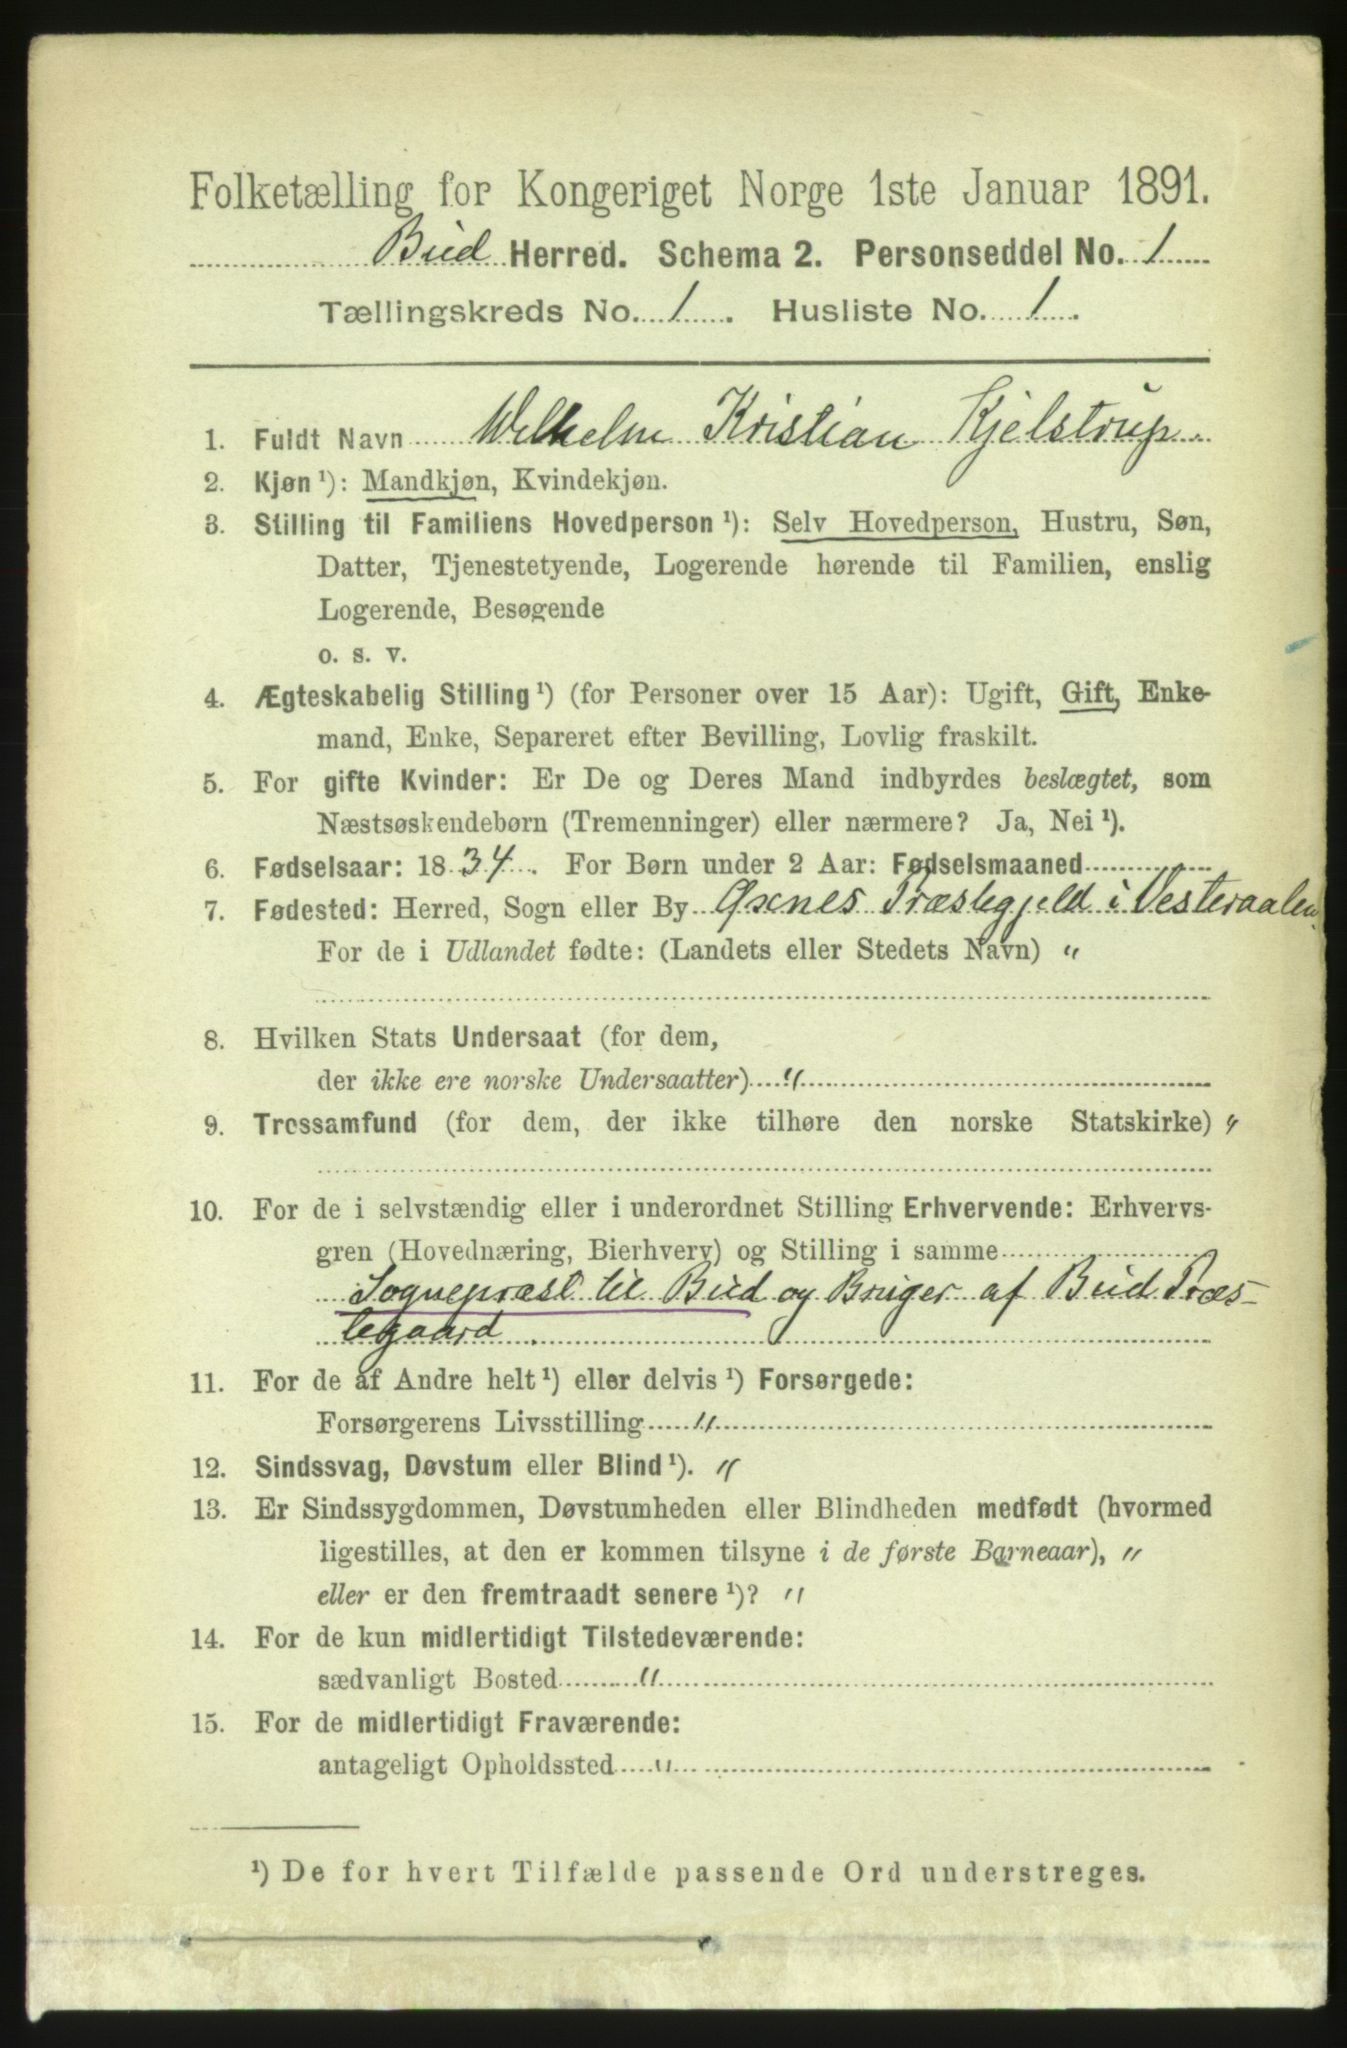 Folketælling for Kongeriget Norge 1ste Januar 1891.
Bud Herred. Schema 2. Personseddel No. 1
Tællingskreds No. 1. Husliste No. 1.
1. Fuldt Navn Wilhelm Kristian Kjelstrup.
2. Kjøn ¹): Mandkjøn, Kvindekjøn.
3. Stilling til Familiens Hovedperson ¹): Selv Hovedperson, Hustru, Søn,
Datter, Tjenestetyende, Logerende hørende til Familien, enslig
Logerende, Besøgende
o. s. v.
4. Ægteskabelig Stilling ¹) (for Personer over 15 Aar): Ugift, Gift, Enke-
mand, Enke, Separeret efter Bevilling, Lovlig fraskilt.
5. For gifte Kvinder: Er De og Deres Mand indbyrdes beslægtet, som
Næstsøskendebørn (Tremenninger) eller nærmere? Ja, Nei ¹).
6. Fødselsaar: 1834. For Børn under 2 Aar: Fødselsmaaned
7. Fødested: Herred, Sogn eller By Øxnes Præstegjeld i Vesteraalen,
For de i Udlandet fødte: (Landets eller Stedets Navn) "
8. Hvilken Stats Undersaat (for dem,
der ikke ere norske Undersaatter) "
9. Trossamfund (for dem, der ikke tilhøre den norske Statskirke) "
10. For de i selvstændig eller i underordnet Stilling Erhvervende: Erhvervs-
gren (Hovednæring, Bierhverv) og Stilling i samme
Sognepræst til Bud og Bruger af Bud Præs-
tegaard.
11. For de af Andre helt ¹) eller delvis ¹) Forsørgede:
Forsørgerens Livsstilling "
12. Sindssvag, Døvstum eller Blind ¹). "
13. Er Sindssygdommen, Døvstumheden eller Blindheden medfødt (hvormed
ligestilles, at den er kommen tilsyne i de første Barneaar), "
eller er den fremtraadt senere ¹)? "
14. For de kun midlertidigt Tilstedeværende:
sædvanligt Bosted "
15. For de midlertidigt Fraværende:
antageligt Opholdssted "
¹) De for hvert Tilfælde passende Ord understreges.